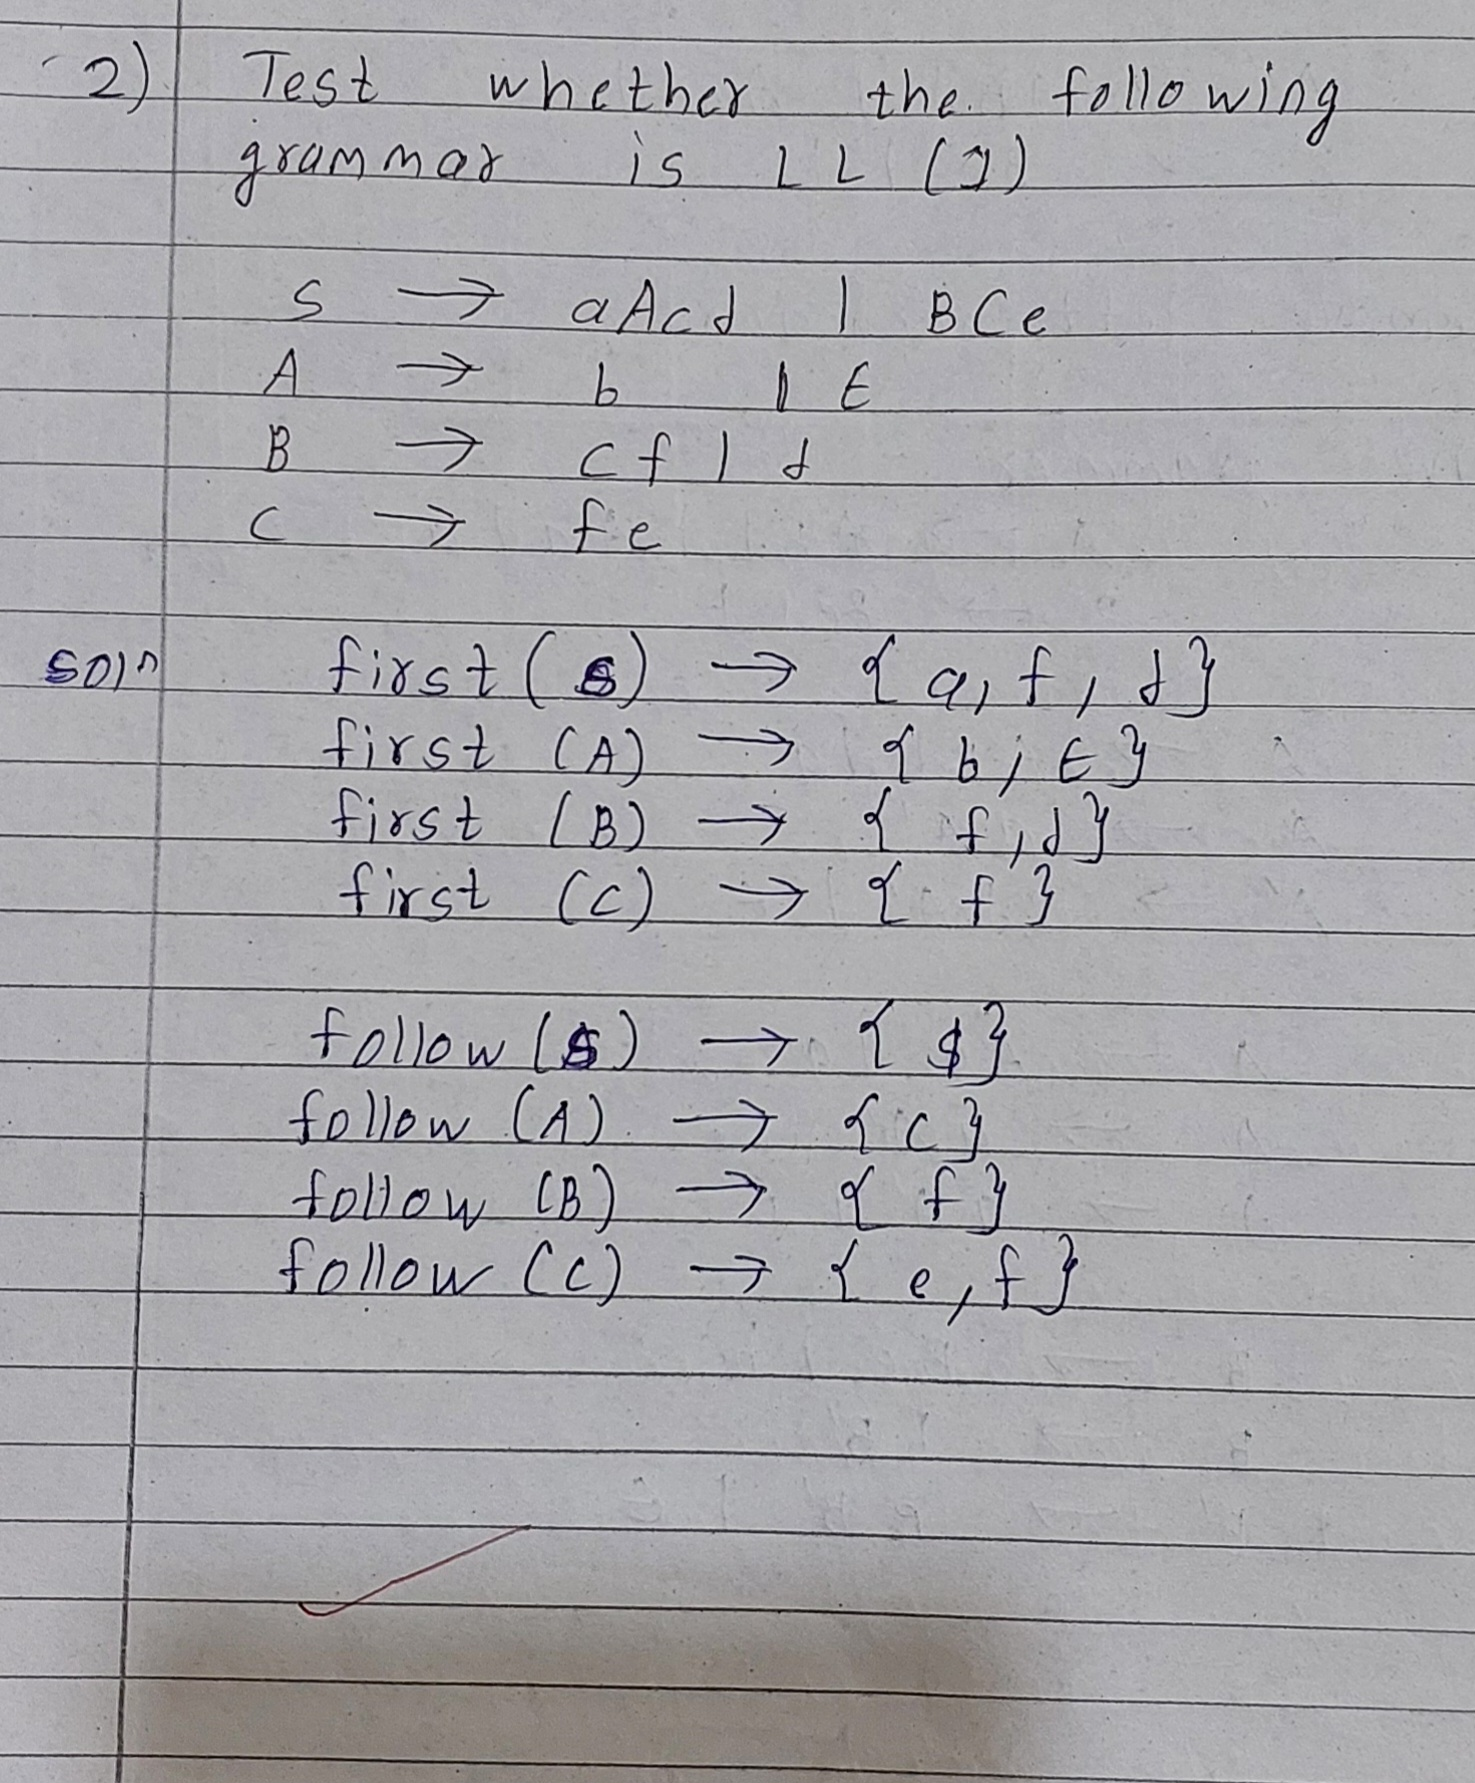 2) Test whether the following
grammar is LL (1)
S → aAcd | BCe
A → b | ε
B → Cf | d
C → fe
soln first (S) → { a, f, d}
first (A) → { b, ε}
first (B) → { f, d}
first (C) → { f }
follow (S) → { $}
follow (A) → { c}
follow (B) → { f}
follow (C) → { e, f}